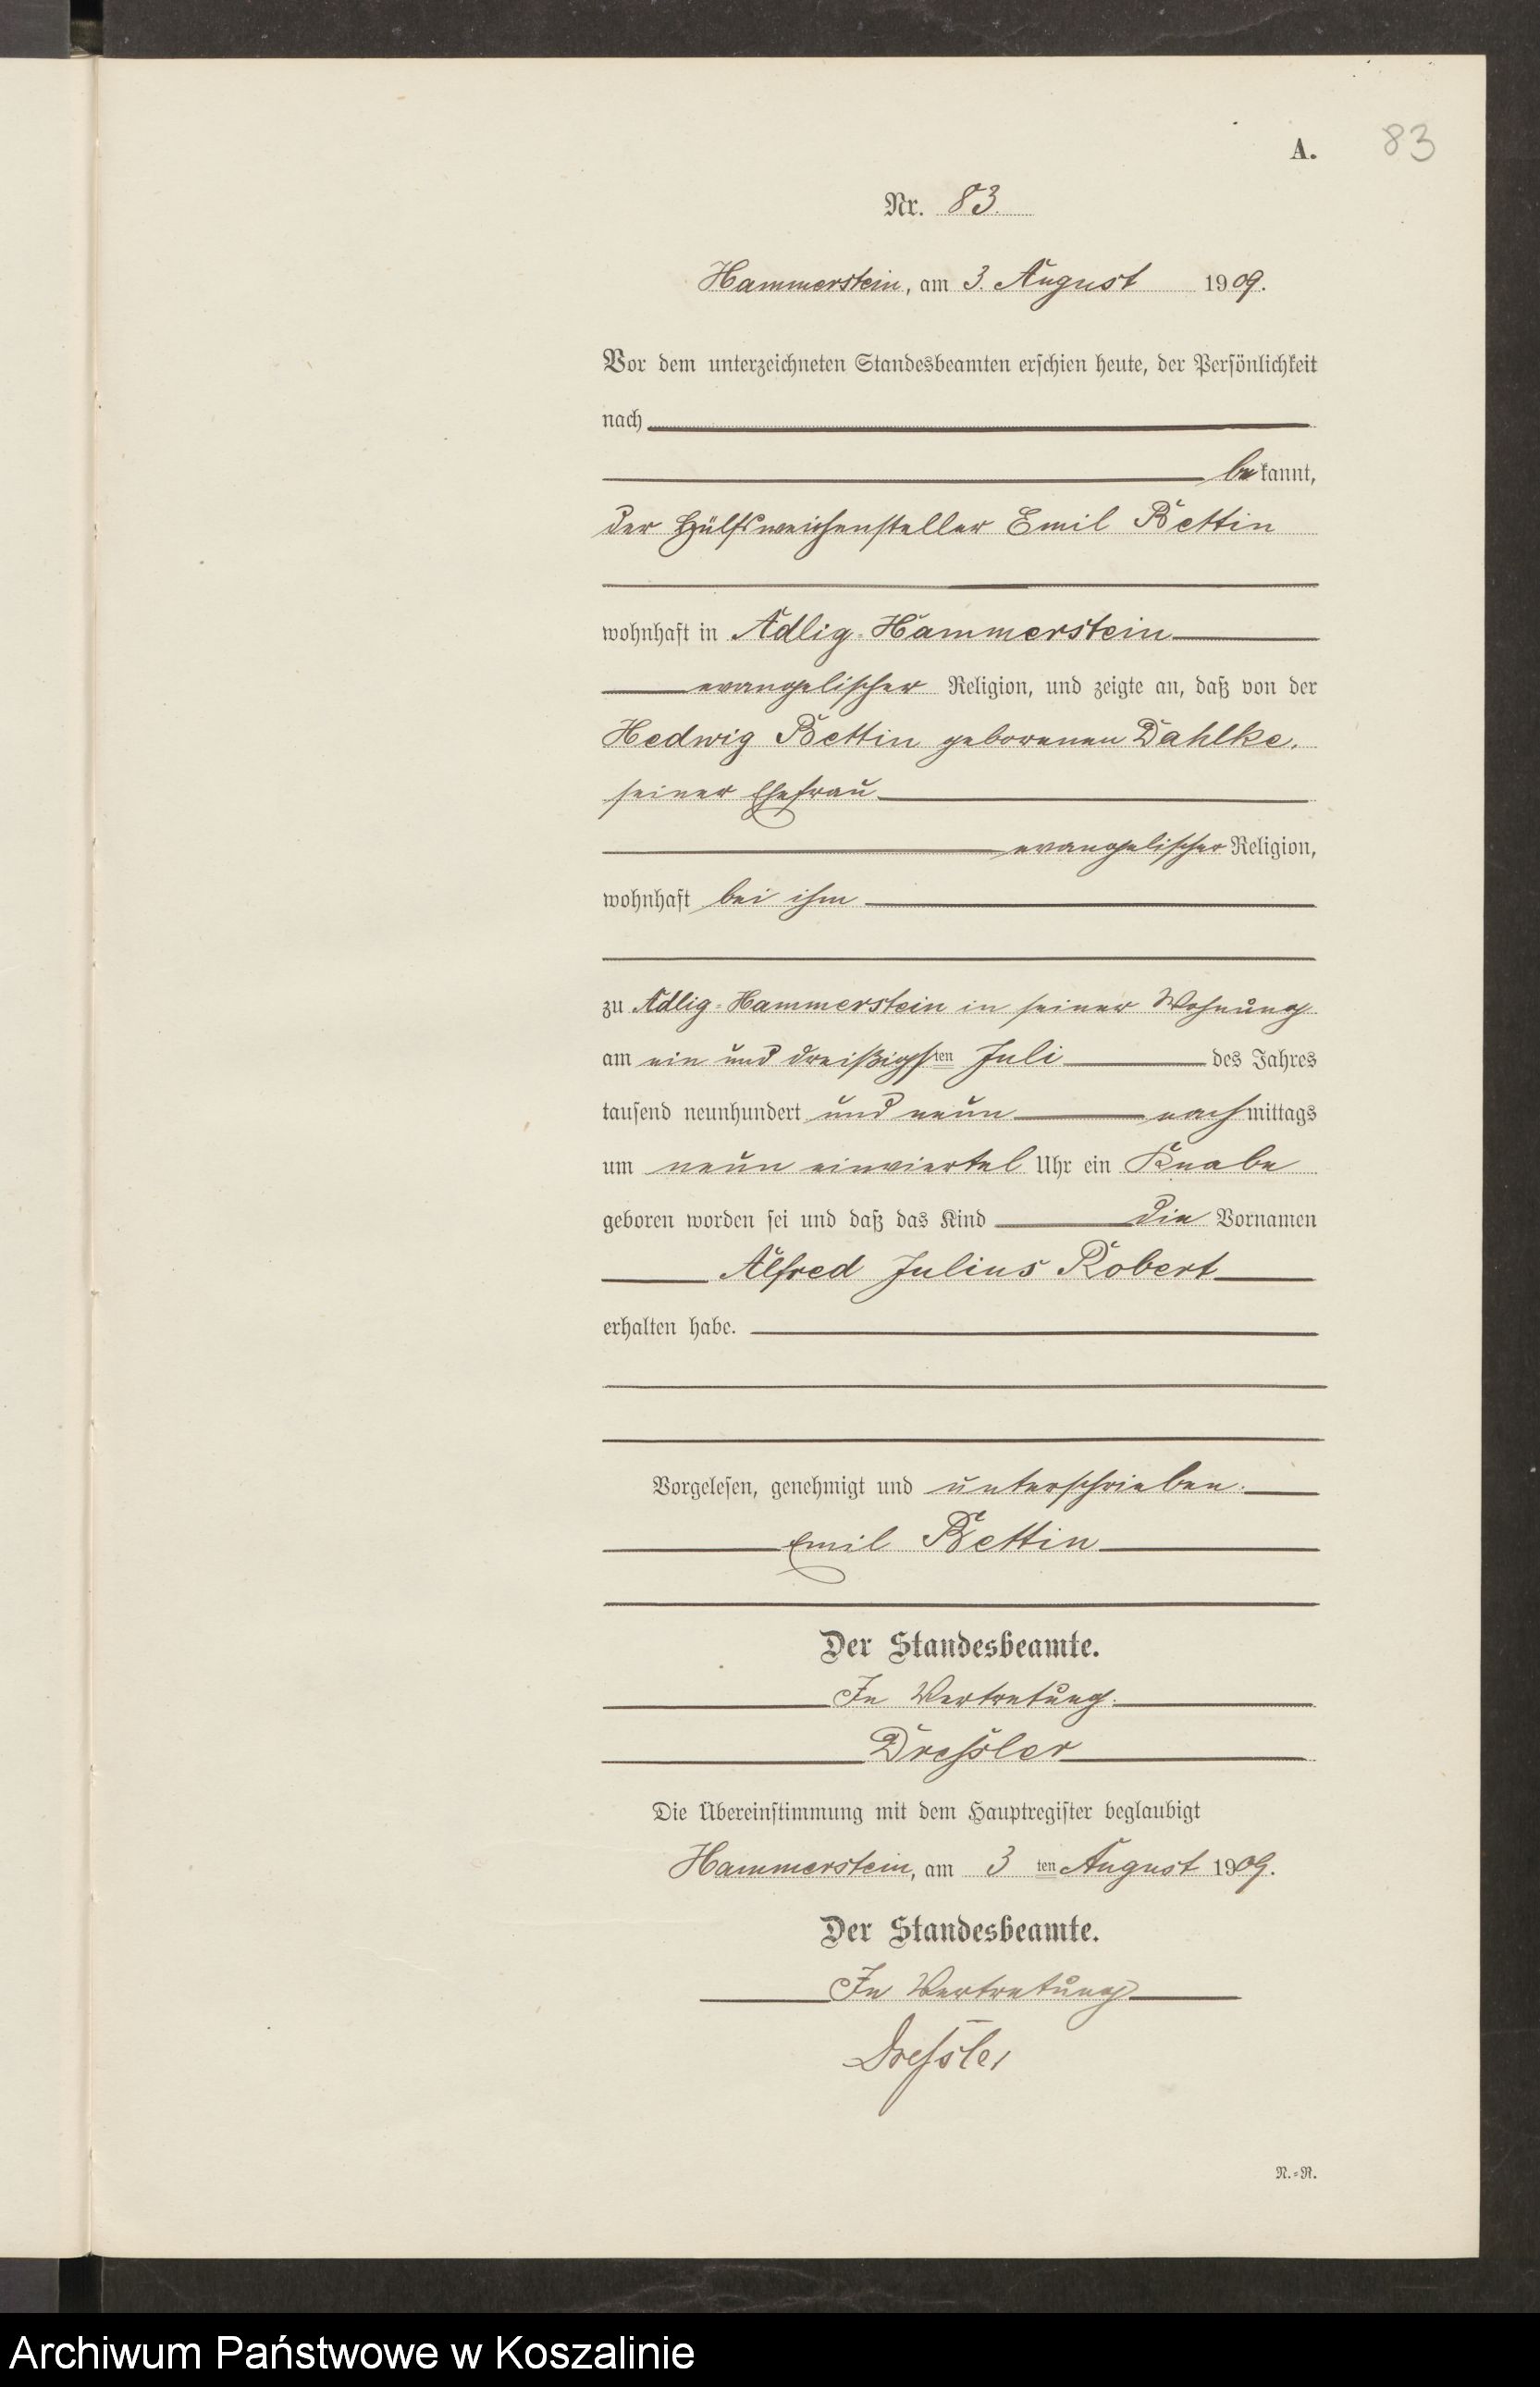 A.
83
Nr. 83.
Hammerstein, am 3. August 1909.
Vor dem unterzeichneten Standesbeamten erschien heute, der Persönlichkeit
nach
bekannt,
der Hülfsweichensteller Emil Bettin
wohnhaft in Adlig-Hammerstein
evangelischer Religion, und zeigte an, daß von der
Hedwig Bettin geborenen Dahlke,
seiner Ehefrau
evangelischer Religion,
wohnhaft bei ihm
zu Adlig-Hammerstein in seiner Wohnung
am ein und dreißigsten Juli des Jahres
tausend neunhundert und neun nachmittags
um neun einviertel Uhr ein Knabe
geboren worden sei und daß das Kind die Vornamen
Alfred Julius Robert
erhalten habe.
Vorgelesen, genehmigt und unterschrieben.
Emil Bettin
Der Standesbeamte.
In Vertretung.
Dressler
Die Übereinstimmung mit dem Hauptregister beglaubigt
Hammerstein, am 3 ten August 1909.
Der Standesbeamte.
In Vertretung
Dressler
N.=R.
Archiwum Państwowe w Koszalinie